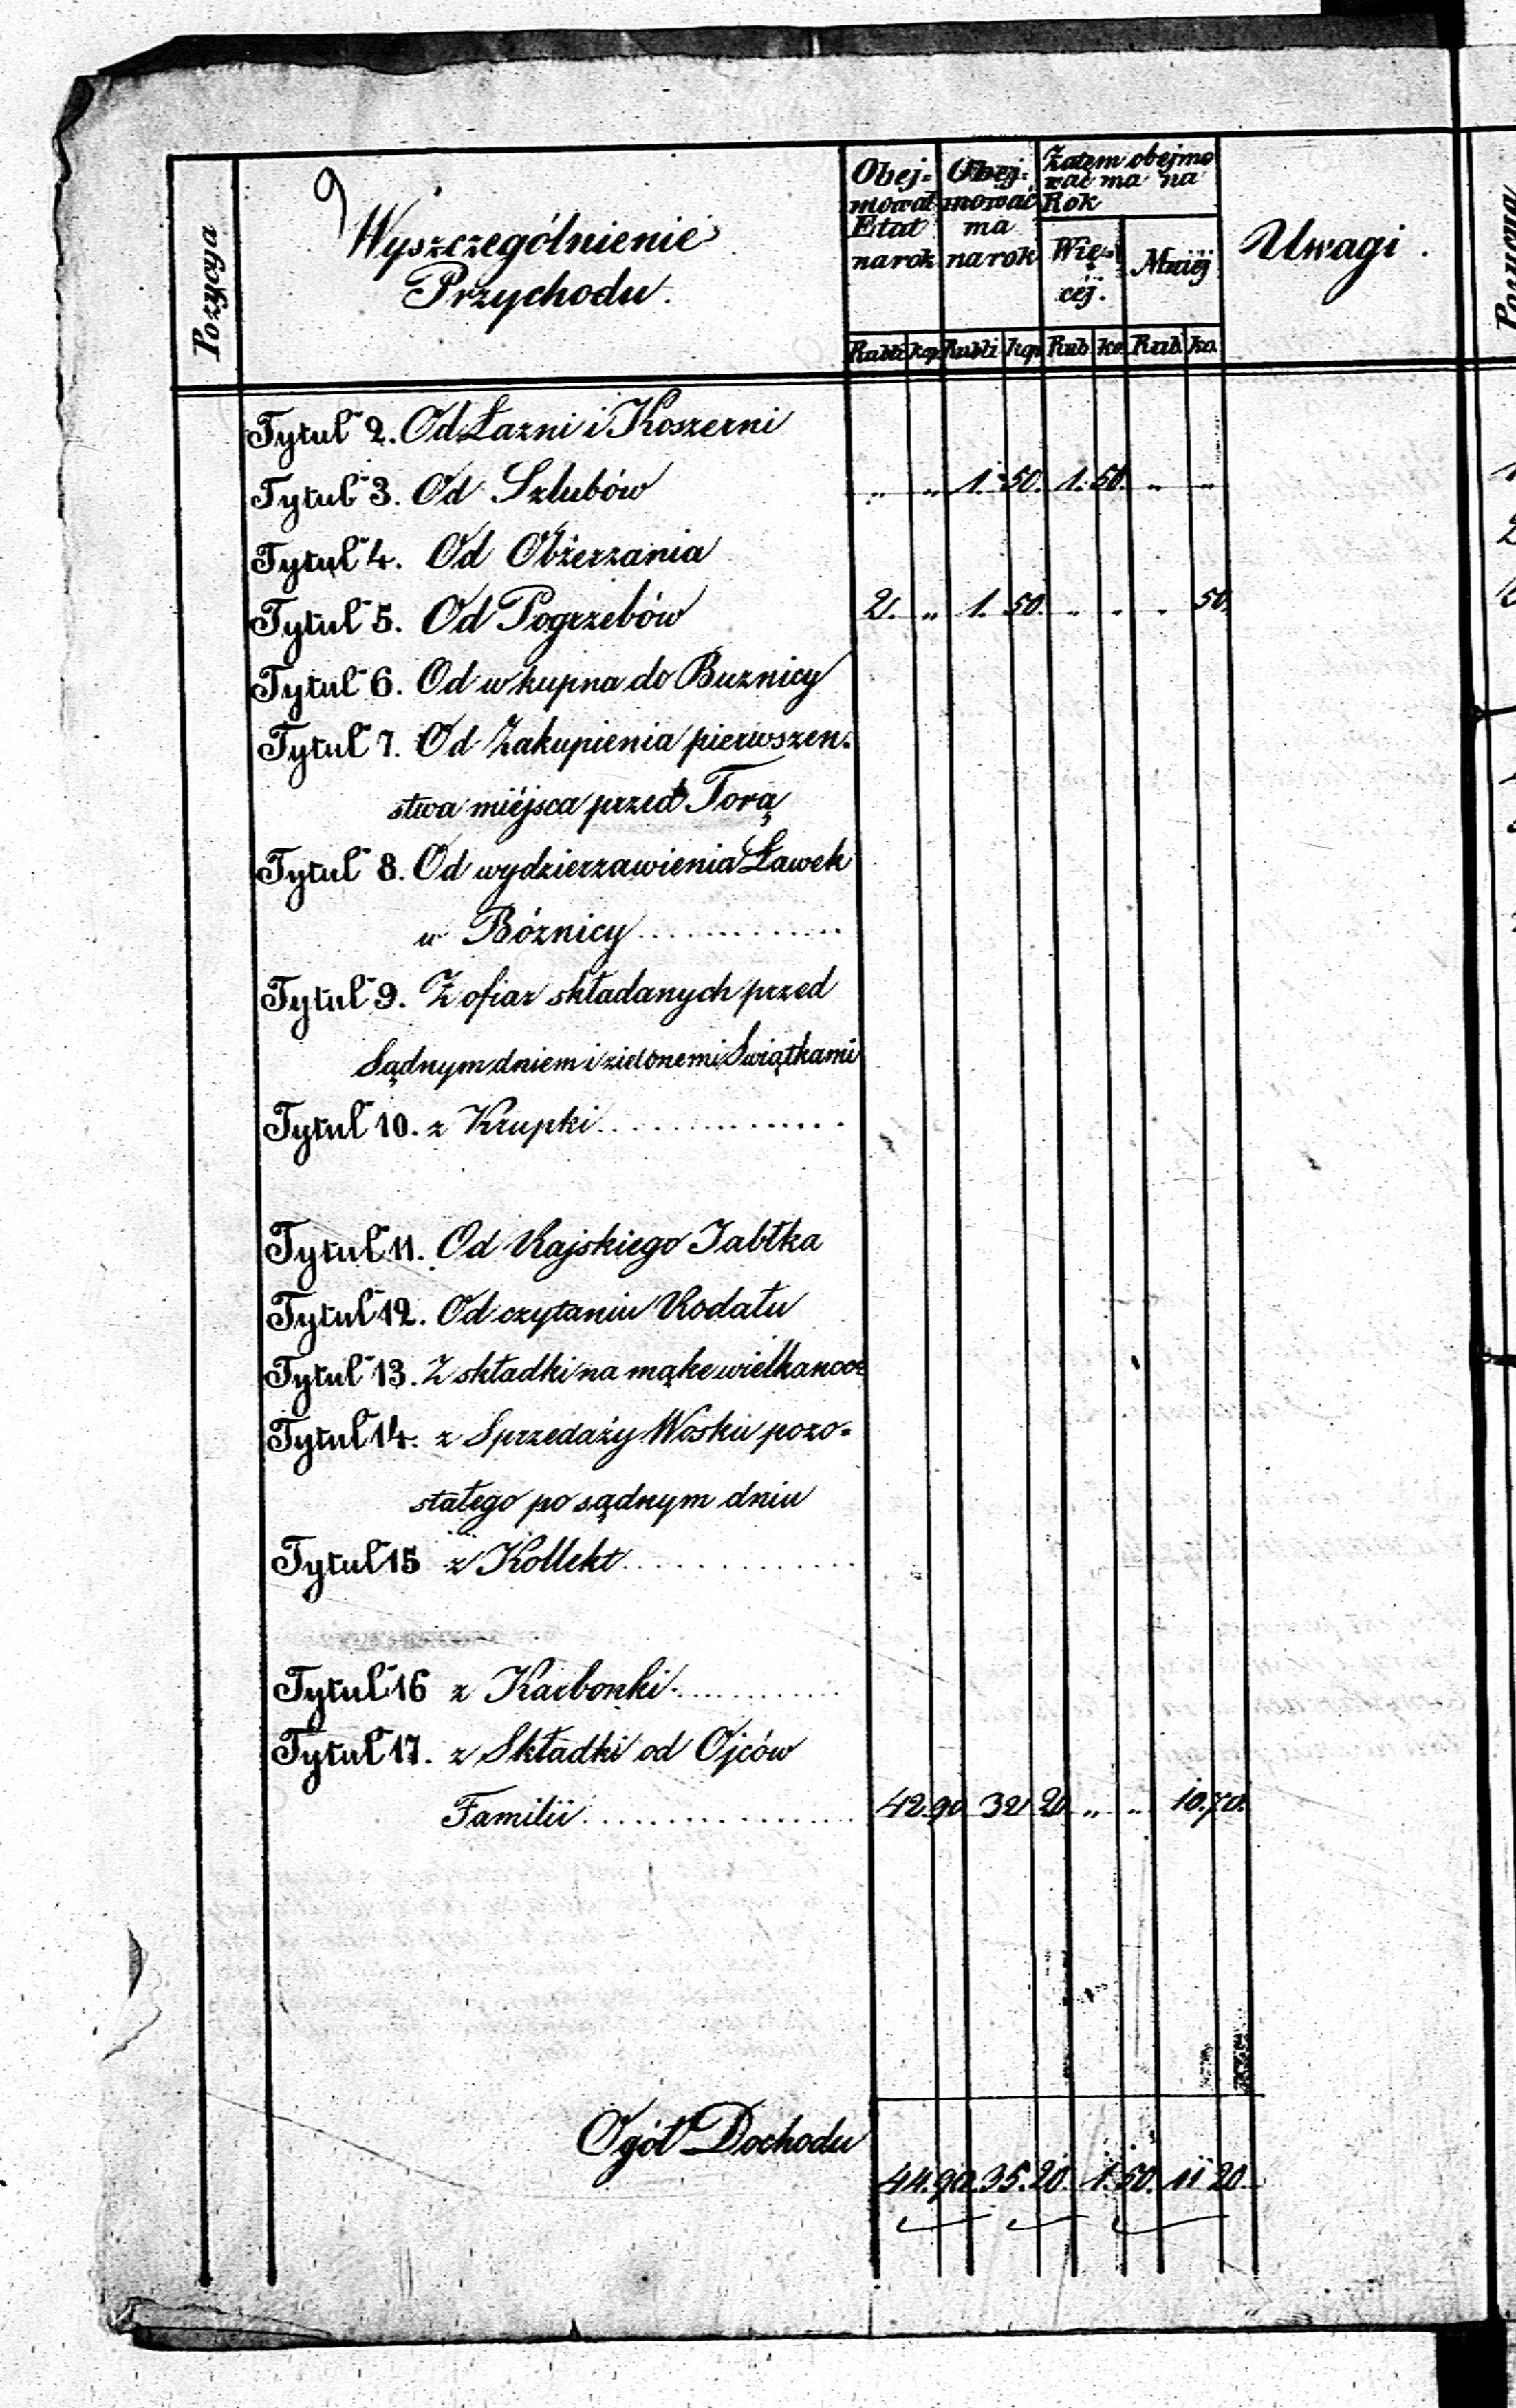 Pozycya
Wyszczególnienie
Przychodu.
Obej=
mował
Etat
na rok
Obej=
mować
ma
na rok
Zatem obejmo
wać ma na
Rok
Wię=
céj.
Mniéj
Uwagi.
Rubli kop Rubli kop Rub ko Rub ko
Tytuł 2. Od Łazni i Koszerni
Tytuł 3. Od Szlubów „ „ 1. 50. 1. 50. „ „
Tytuł 4. Od Obżerzania
Tytuł 5. Od Pogrzebów 2. „ 1. 50. „ „ „ 50.
Tytuł 6. Od wkupna do Buznicy
Tytuł 7. Od Zakupienia pierwszen=
stwa miéjsca przed Torą
Tytuł 8. Od wydzierzawienia Ławek
w Bóznicy
Tytuł 9. Z ofiar składanych przed
Sądnym dniem i zielonemi Swiątkami
Tytuł 10. z Krupki
Tytuł 11. Od Rajskiego Jabłka
Tytuł 12. Od czytaniu Rodału
Tytuł 13. Z składki na mąke wielkanoc
Tytuł 14. z Sprzedaży Wosku pozo=
stałego po sądnym dniu
Tytuł 15 z Kollekt
Tytuł 16 z Karbonki
Tytuł 17. z Składki od Ojców
Familii 42. 90 32 20 „ „ 10. 70.
Ogół Dochodu
44. 90. 35. 20. 1. 50. 11 20